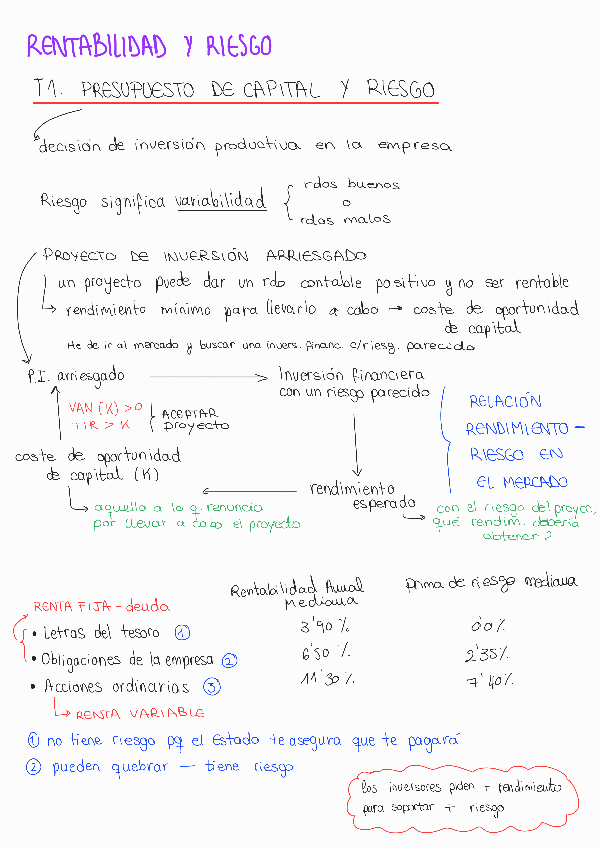 RENTABILIDAD Y RIESGO
T1. PRESUPUESTO DE CAPITAL Y RIESGO
decisión de inversión productiva en la empresa
Riesgo significa variabilidad
rdos buenos
o
rdos malos
PROYECTO DE INVERSIÓN ARRIESGADO
un proyecto puede dar un rdo contable positivo y no ser rentable
rendimiento mínimo para llevarlo a cabo → coste de oportunidad
de capital
He de ir al mercado y buscar una invers. financ. c/riesg. parecido
P.I. arriesgado
Inversión financiera
con un riesgo parecido
VAN (K) > 0
TIR > K
ACEPTAR
proyecto
RELACIÓN
RENDIMIENTO -
RIESGO EN
EL MERCADO
coste de oportunidad
de capital (K)
rendimiento
esperado
aquello a lo q. renuncio
por llevar a cabo el proyecto
con el riesgo del proyec,
qué rendim. debería
obtener?
Rentabilidad Anual
Mediana
Prima de riesgo mediana
RENTA FIJA - deuda
• Letras del tesoro ① 3'90 % 0'0 %
• Obligaciones de la empresa ② 6'50 % 2'35%
• Acciones ordinarias ③ 11'30 % 7'40%
RENTA VARIABLE
① no tiene riesgo pq el Estado te asegura que te pagará
② pueden quebrar — tiene riesgo
los inversores piden + rendimiento
para soportar + riesgo